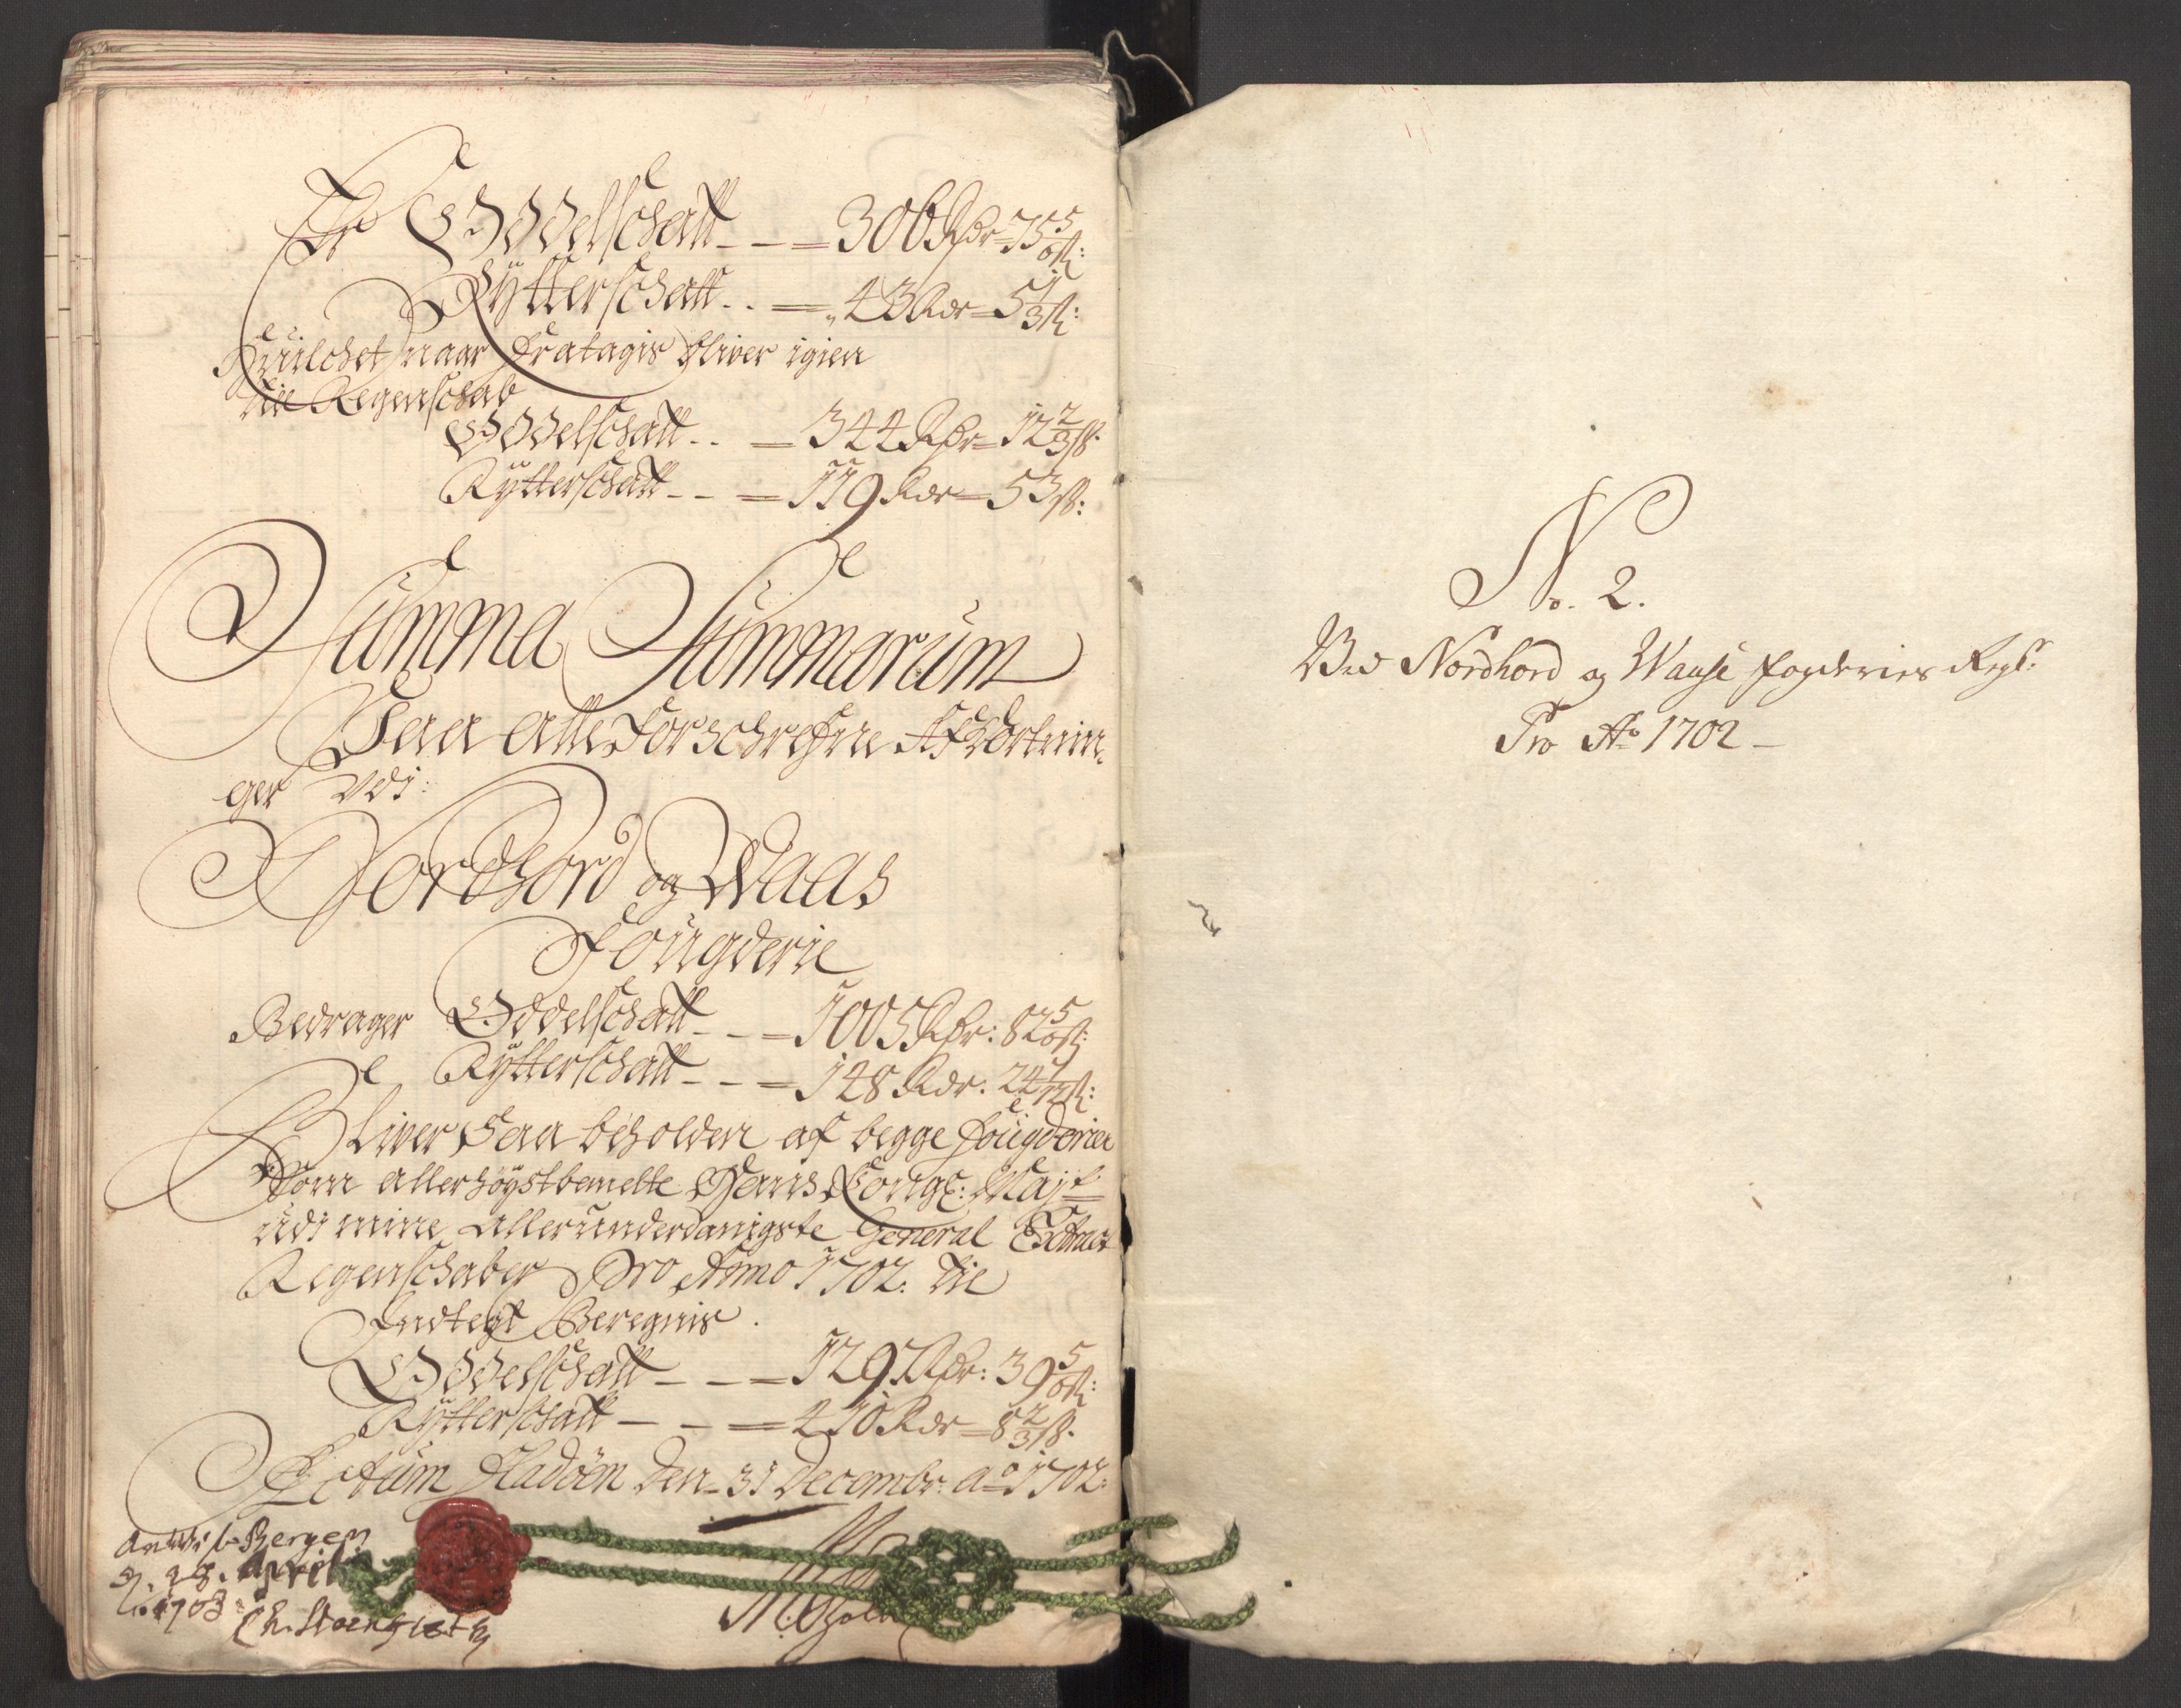 Er Oddelschatt - - = 306 Rdr = 75 5/6 ß:
Rytterschatt - - = 43 Rdr = 5 1/3 ß:
Huilchet naar Fratagis bliver igien
till Regenschab
Oddelschatt - - = 344 Rdr = 12 2/3 ß.
Rytterschatt - - = 119 Rdr = 53 ß:
Summa Summarum
Paa alle Forschrefne Afkortnin-
ger Udi:
Nordhord og Waas
Fougderie
Bedrager Oddelschatt - - = 1005 Rdr: 82 5/6 ß:
Rytterschatt - - = 148 Rdr. 24 1/12 ß:
Bliver saa beholden af begge Fougderier
som allerhöystbemelte Hans Kongl: Majt
udi mine allerunderdanigste General Extract
Regenschaber Pro Anno 1702. till
Indtegt Beregnis.
Oddelschatt - - = 1297 Rdr: 39 5/6 ß:
Rytterschatt - - = 410 Rdr = 8 2/3 ß.
Actum Fladöen den 31 Decembr: ao 1702:
Bergen
d. 28. April
Ao 1703
N. 2.
Ved Nordhord og Waase fogderies Regsk:
Pro Ao 1702 -